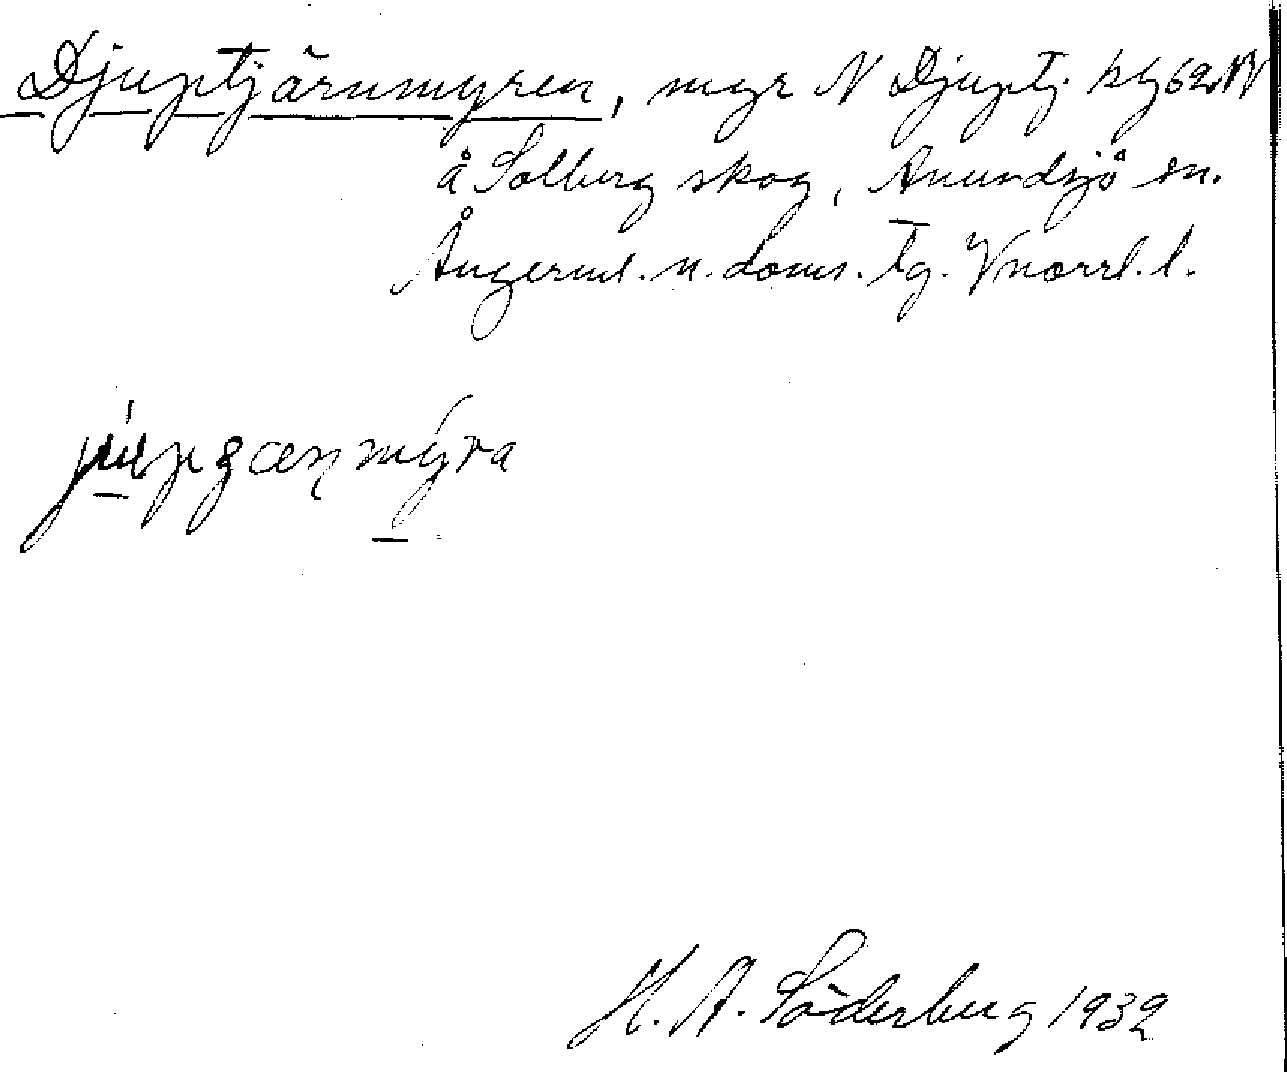 Djuptjärnmyren, myr N Djuptj. kbl 62 NV
å Solberg skog, Anundsjö sn.
Ångerml. n. doms. tg. Vnorrl. l.
H. A. Söderberg 1932